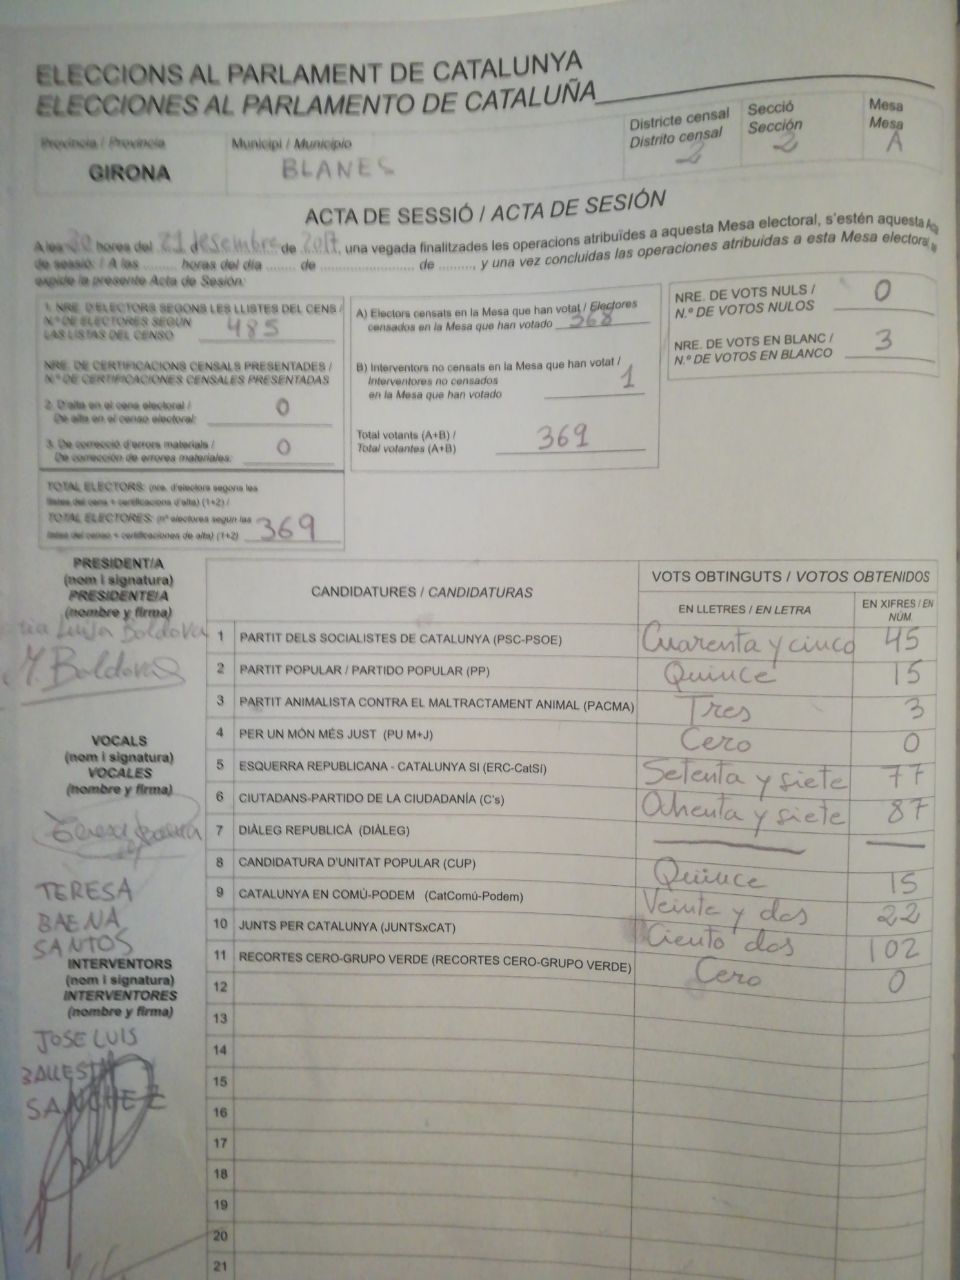 ELECCIONS AL PARLAMENT DE CATALUNYA
ELECCIONES AL PARLAMENTO DE CATALUÑA
Província / Provincia
GIRONA
Municipi / Municipio
BLANES
Districte censal
Distrito censal
2
Secció
Sección
2
Mesa
Mesa
A
ACTA DE SESSIÓ / ACTA DE SESIÓN
A les 20 hores del 21 d desembre de 2017, una vegada finalitzades les operacions atribuïdes a aquesta Mesa electoral, s'estén aquesta Acta
de sessió. / A las ......... horas del día ........ de ........................ de ........., y una vez concluidas las operaciones atribuidas a esta Mesa electoral, se
expide la presente Acta de Sesión:
1. NRE. D'ELECTORS SEGONS LES LLISTES DEL CENS /
N.º DE ELECTORES SEGÚN
LAS LISTAS DEL CENSO 485
NRE. DE CERTIFICACIONS CENSALS PRESENTADES /
N.º DE CERTIFICACIONES CENSALES PRESENTADAS
2. D'alta en el cens electoral /
De alta en el censo electoral: 0
3. De correcció d'errors materials /
De corrección de errores materiales: 0
TOTAL ELECTORS: (nre. d'electors segons les
llistes del cens + certificacions d'alta) (1+2) /
TOTAL ELECTORES: (nº electores según las
listas del censo + certificaciones de alta) (1+2) 369
A) Electors censats en la Mesa que han votat / Electores
censados en la Mesa que han votado 368
B) Interventors no censats en la Mesa que han votat /
Interventores no censados
en la Mesa que han votado 1
Total votants (A+B) /
Total votantes (A+B) 369
NRE. DE VOTS NULS /
N.º DE VOTOS NULOS 0
NRE. DE VOTS EN BLANC /
N.º DE VOTOS EN BLANCO 3
PRESIDENT/A
(nom i signatura)
PRESIDENTE/A
(nombre y firma)
Luisa Boldova
M. Boldova
VOCALS
(nom i signatura)
VOCALES
(nombre y firma)
Teresa Baena
TERESA
BAENA
SANTOS
INTERVENTORS
(nom i signatura)
INTERVENTORES
(nombre y firma)
JOSE LUIS
SANCHEZ
CANDIDATURES / CANDIDATURAS
VOTS OBTINGUTS / VOTOS OBTENIDOS
EN LLETRES / EN LETRA
EN XIFRES / EN
NÚM.
1 PARTIT DELS SOCIALISTES DE CATALUNYA (PSC-PSOE) Cuarenta y cinco 45
2 PARTIT POPULAR / PARTIDO POPULAR (PP) Quince 15
3 PARTIT ANIMALISTA CONTRA EL MALTRACTAMENT ANIMAL (PACMA) Tres 3
4 PER UN MÓN MÉS JUST (PU M+J) Cero 0
5 ESQUERRA REPUBLICANA - CATALUNYA SI (ERC-CatSí) Setenta y siete 77
6 CIUTADANS-PARTIDO DE LA CIUDADANÍA (C's) Ochenta y siete 87
7 DIÀLEG REPUBLICÀ (DIÀLEG)
8 CANDIDATURA D'UNITAT POPULAR (CUP) Quince 15
9 CATALUNYA EN COMÚ-PODEM (CatComú-Podem) Veinte y dos 22
10 JUNTS PER CATALUNYA (JUNTSxCAT) Ciento dos 102
11 RECORTES CERO-GRUPO VERDE (RECORTES CERO-GRUPO VERDE) Cero 0
12
13
14
15
16
17
18
19
20
21